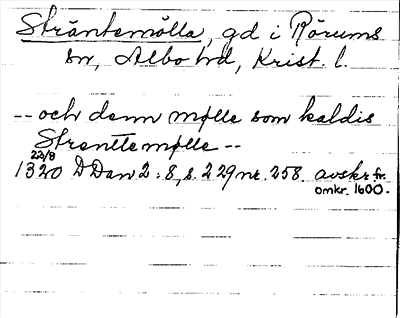 Sträntemölla, gd i Rörums
sn, Albo hd, Krist. l.
-- och denn mølle som kaldis
Strenttemølle --
22/8
1320 DDan 2:8, s. 229 nr. 258. avskr. fr.
omkr. 1600.